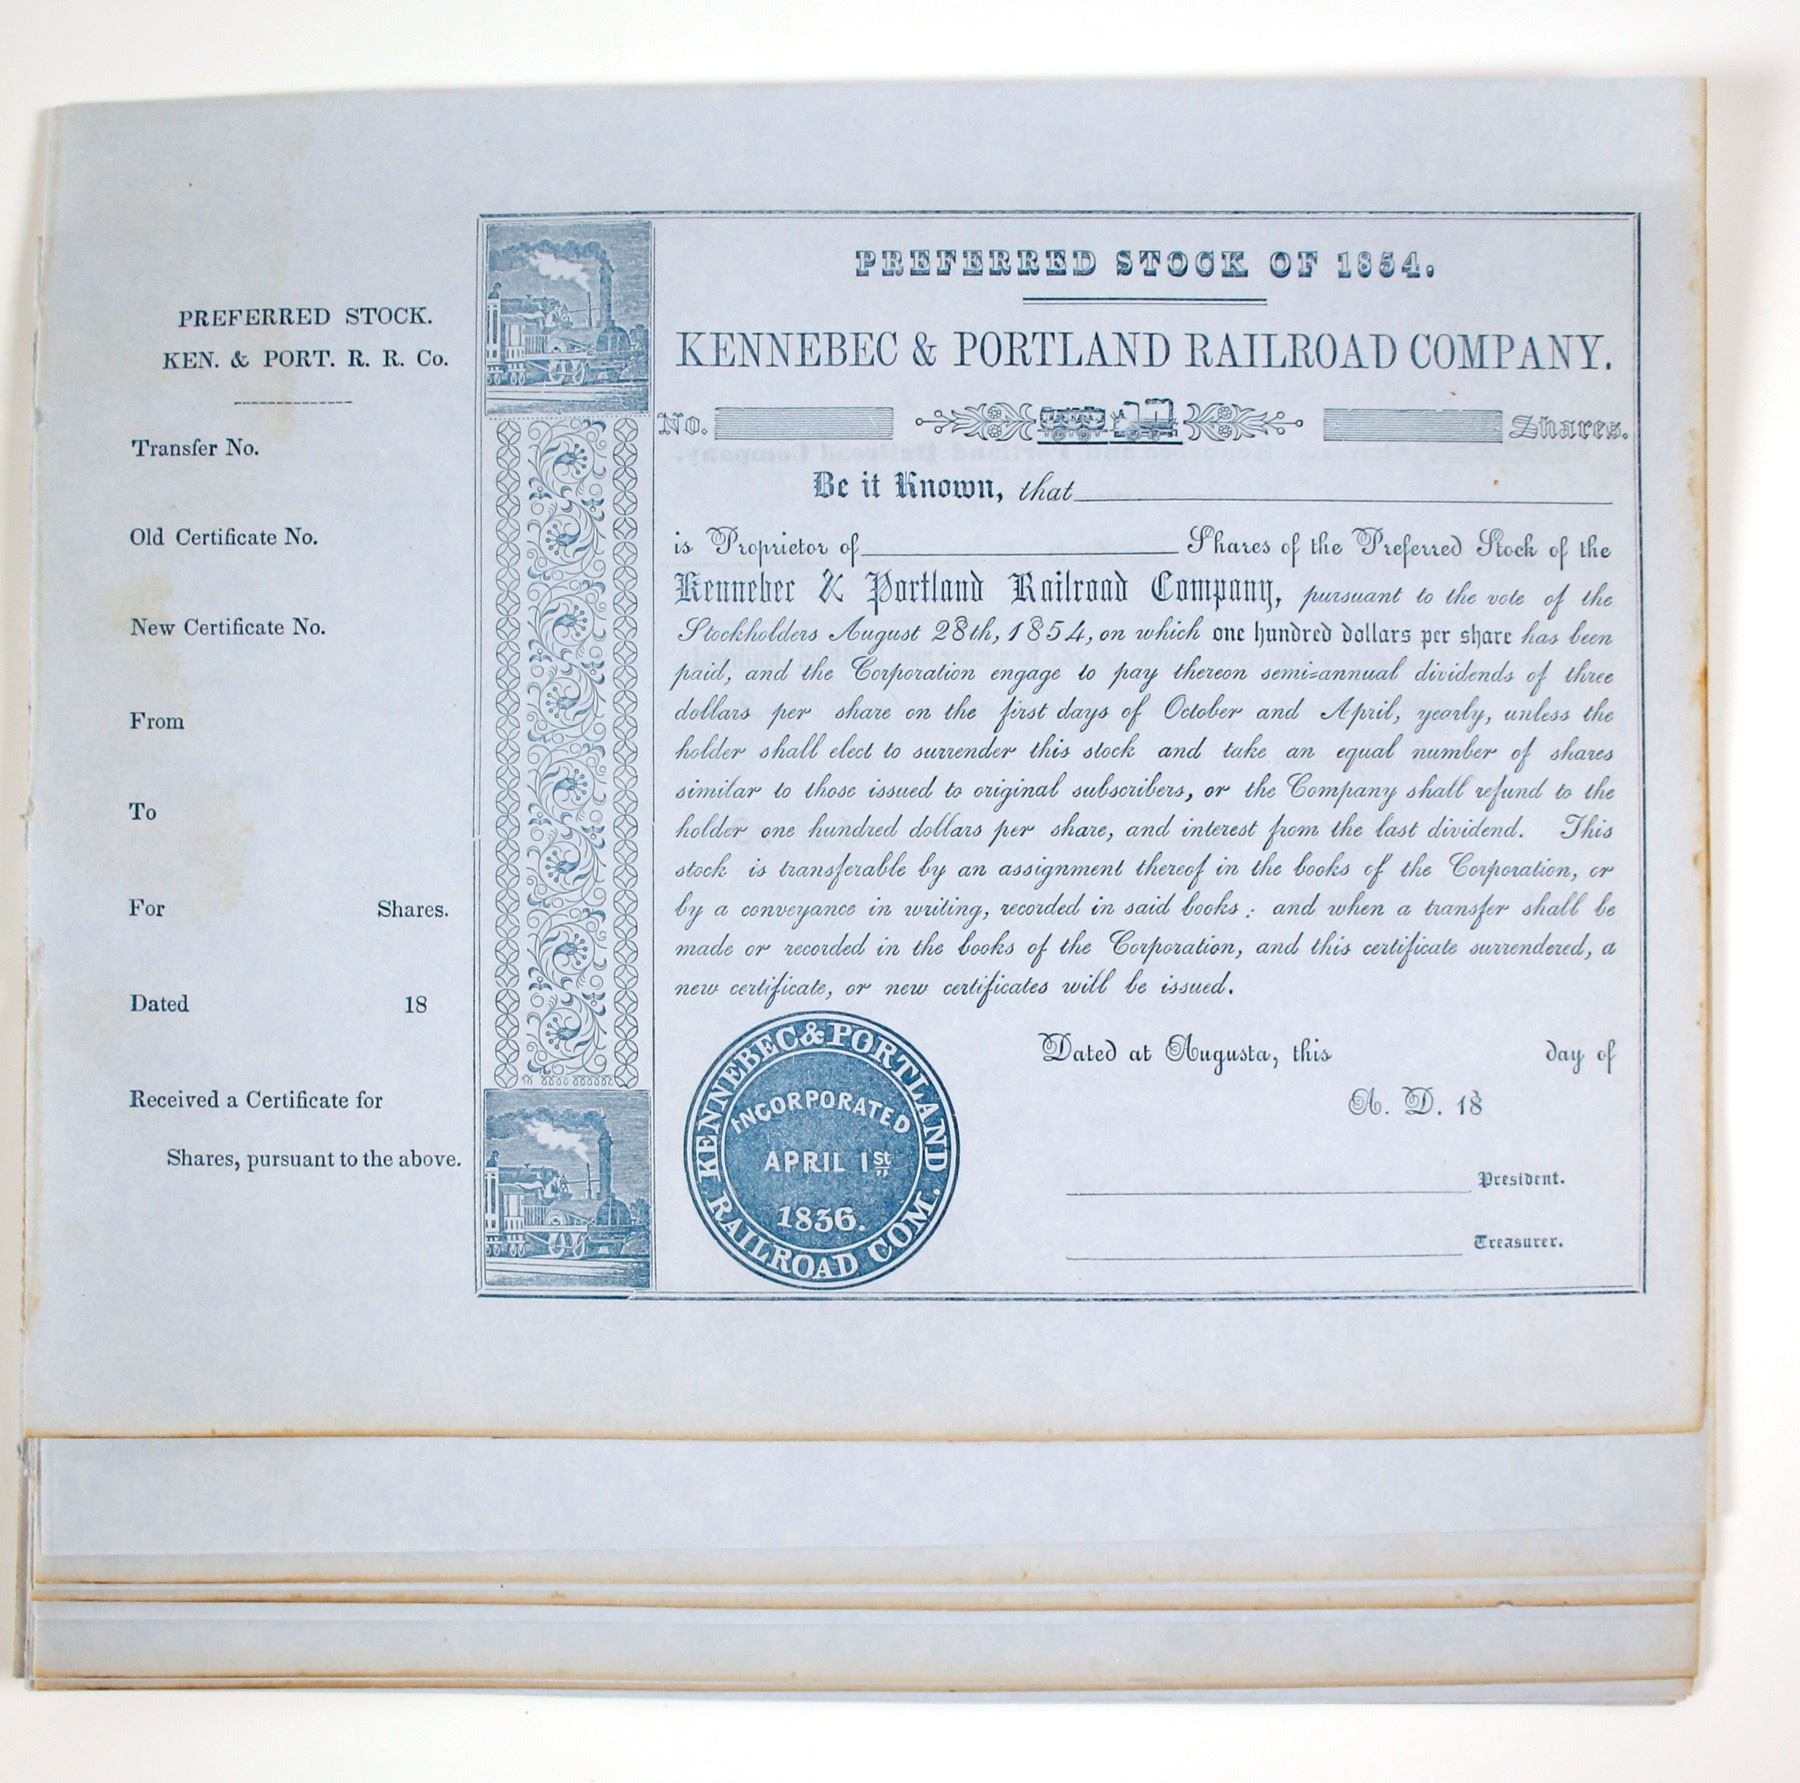 PREFERRED STOCK.
KEN. & PORT. R. R. Co.
Transfer No.
Old Certificate No.
New Certificate No.
From
To
For Shares.
Dated 18
Received a Certificate for
Shares, pursuant to the above.
PREFERRED STOCK OF 1854.
KENNEBEC & PORTLAND RAILROAD COMPANY.
No. Shares.
Be it Known, that
is Proprietor of Shares of the Preferred Stock of the
Kennebec & Portland Railroad Company, pursuant to the vote of the
Stockholders August 28th, 1854, on which one hundred dollars per share has been
paid, and the Corporation engage to pay thereon semi-annual dividends of three
dollars per share on the first days of October and April, yearly, unless the
holder shall elect to surrender this stock and take an equal number of shares
similar to those issued to original subscribers, or the Company shall refund to the
holder one hundred dollars per share, and interest from the last dividend. This
stock is transferable by an assignment thereof in the books of the Corporation, or
by a conveyance in writing, recorded in said books; and when a transfer shall be
made or recorded in the books of the Corporation, and this certificate surrendered, a
new certificate, or new certificates will be issued.
KENNEBEC & PORTLAND RAILROAD COM.
INCORPORATED
APRIL 1st
1836.
Dated at Augusta, this day of
A. D. 18
President.
Treasurer.